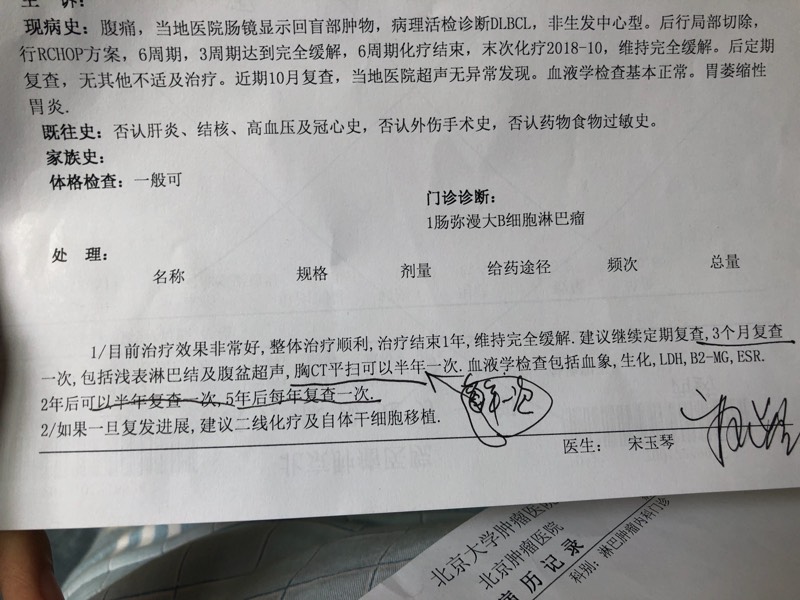 主 诉:
现病史: 腹痛, 当地医院肠镜显示回盲部肿物, 病理活检诊断DLBCL, 非生发中心型。后行局部切除,
行RCHOP方案, 6周期, 3周期达到完全缓解, 6周期化疗结束, 末次化疗2018-10, 维持完全缓解。后定期
复查, 无其他不适及治疗。近期10月复查, 当地医院超声无异常发现。血液学检查基本正常。胃萎缩性
胃炎.
既往史: 否认肝炎、结核、高血压及冠心史, 否认外伤手术史, 否认药物食物过敏史。
家族史:
体格检查: 一般可
门诊诊断:
1肠弥漫大B细胞淋巴瘤
处 理:
名称 规格 剂量 给药途径 频次 总量
1/目前治疗效果非常好, 整体治疗顺利, 治疗结束1年, 维持完全缓解. 建议继续定期复查, 3个月复查
一次, 包括浅表淋巴结及腹盆超声, 胸CT平扫可以半年一次. 血液学检查包括血象, 生化, LDH, B2-MG, ESR.
2年后可以半年复查一次, 5年后每年复查一次.
2/如果一旦复发进展, 建议二线化疗及自体干细胞移植.
医生: 宋玉琴
北京大学肿瘤医院
北京肿瘤医院
病历记录
科别: 淋巴肿瘤内科门诊